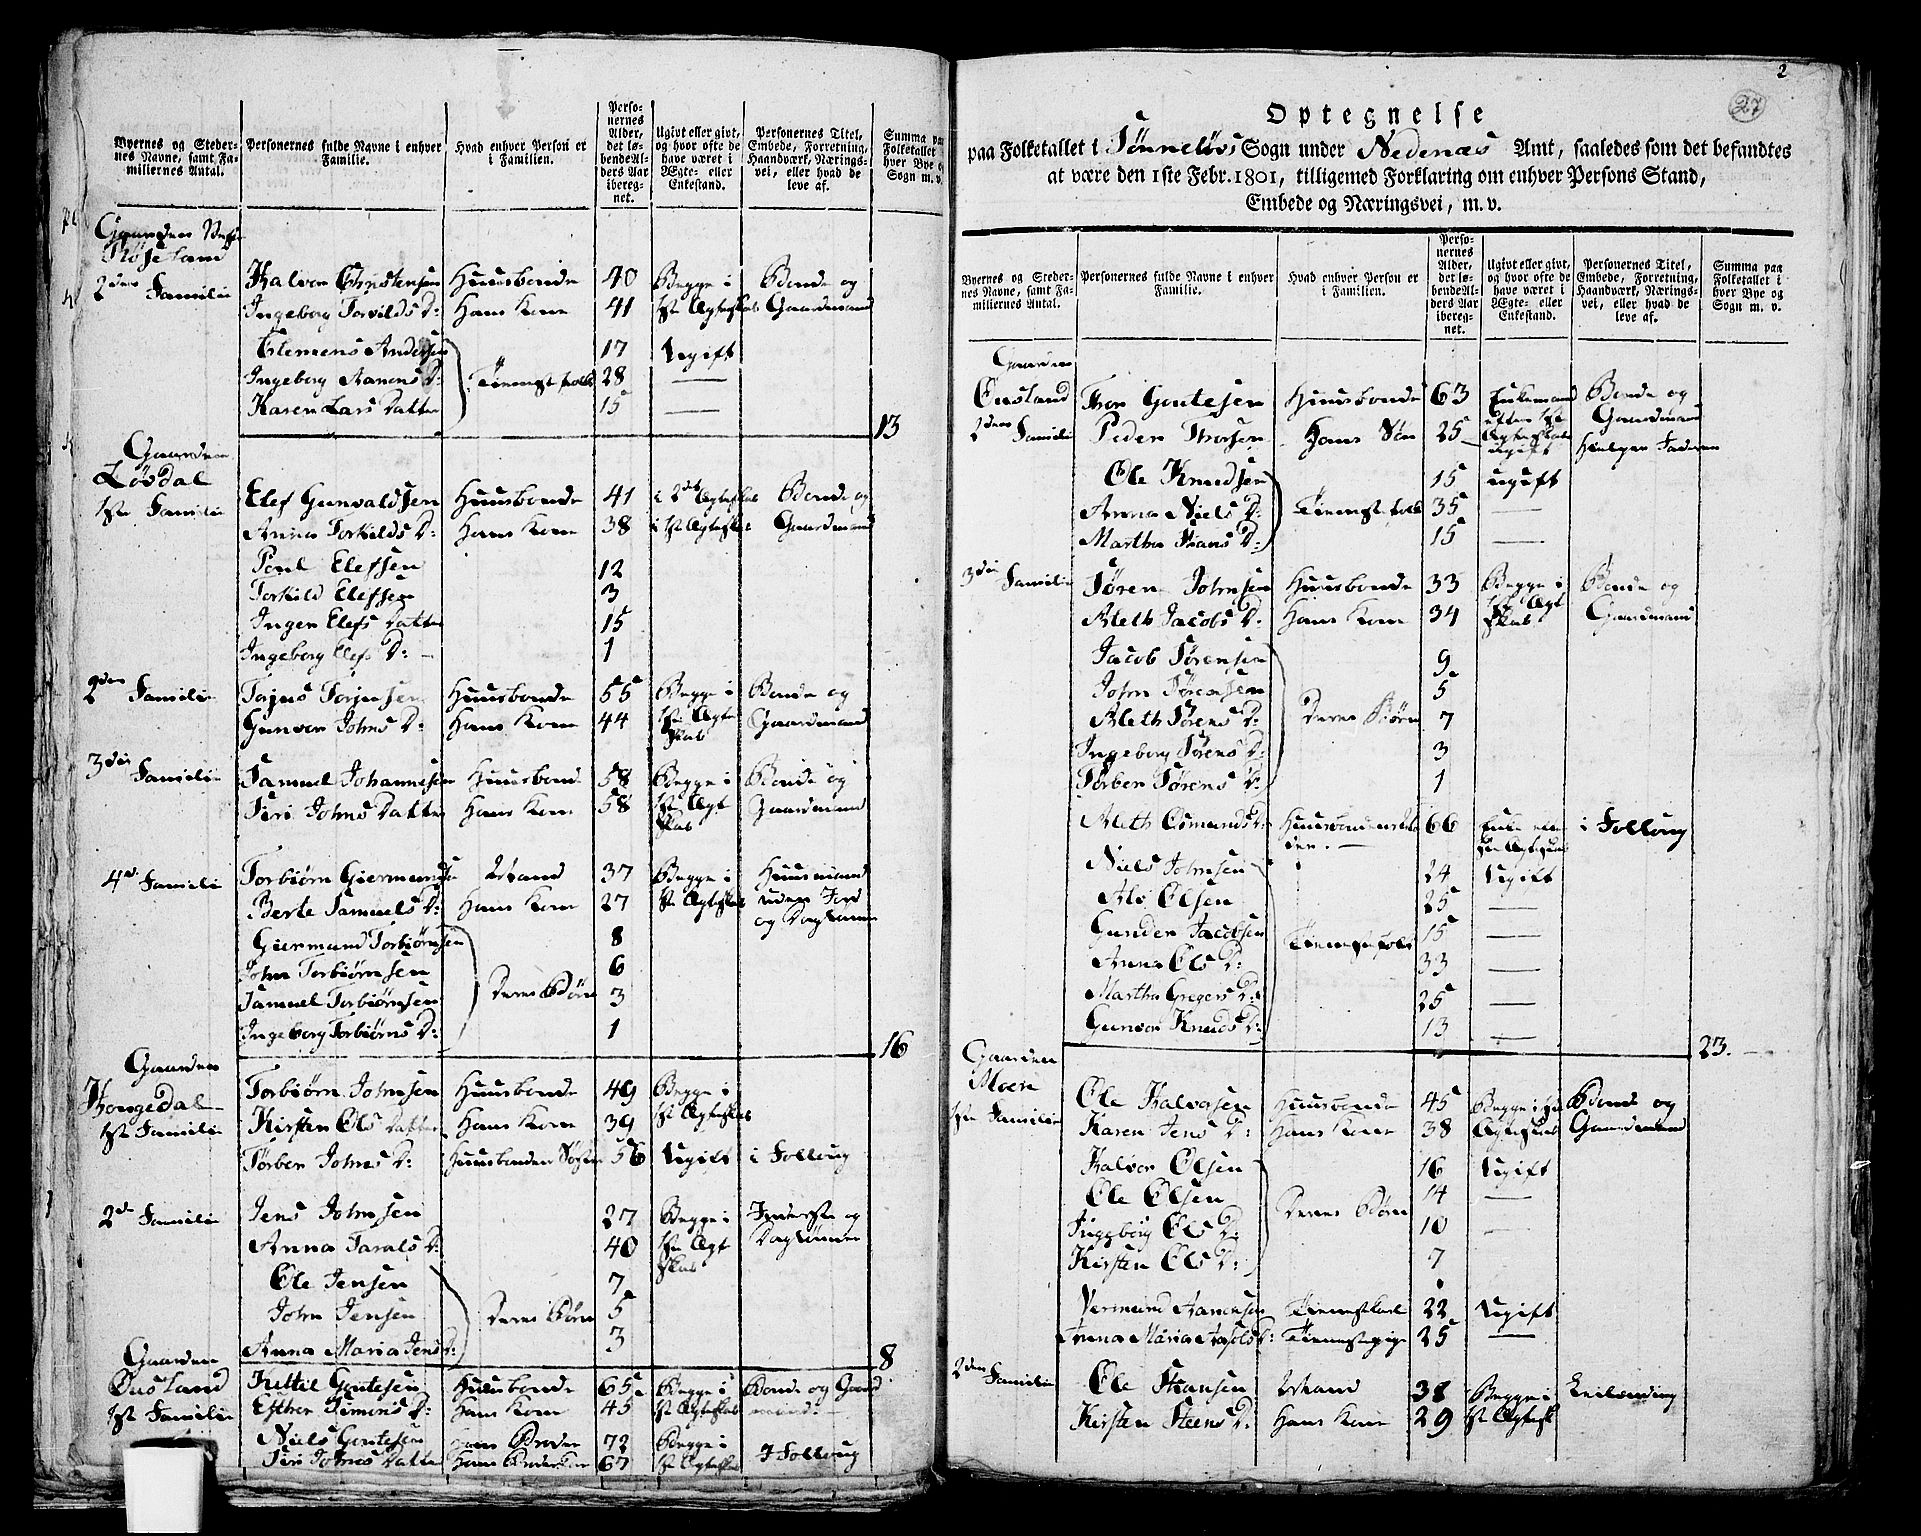 Byernes og Stedernes Navne, samt Familiernes Antal. | Personernes fulde Navne i enhver Familie. | Hvad enhver Person er i Familien. | Personernes Alder, det løbende Alders Aar iberegnet. | Ugivt eller givt, og hvor ofte de have været i Ægte- eller Enkestand. | Personernes Titel, Embede, Forretning, Haandværk, Næringsvei, eller hvad de leve af. | Summa paa Folketallet i hver Bye og Sogn m. v.
Gaarden
Røseland
2den Familie | Halvor Christensen | Huusbonde | 40 | Begge i | Bonde og
Ingeborg Torvilds D: | Hans Kone | 41 | 1ste Ægteskab | Gaardmand
Clemens Andersen | 17 | Ugift
Ingeborg Aanens D: | Tienestefolk | 28 | —
Karen Lars Datter | 15 | —
13
Gaarden
Løvdal
1ste Familie | Elef Gunvaldsen | Huusbonde | 41 | i 2det Ægteskab | Bonde og
Anna Torkilds D: | Hans Kone | 38 | i 1ste Ægteskab | Gaardmand
Poul Elefsen | 12
Torkild Elefsen | 3
Inger Elefs Datter | 15
Ingeborg Elefs D: | 1
2den Familie | Torjus Torjusen | Huusbonde | 55 | Begge i | Bonde og
Gunvor Johns D: | Hans Kone | 44 | 1ste Ægteskab | Gaardmand
3die Familie | Samuel Johannesen | Huusbonde | 58 | Begge i | Bonde og
Siri Johns Datter | Hans Kone | 58 | 1ste Ægteskab | Gaardmand
4de Familie | Torbiørn Giermundsen | Mand | 37 | Begge i | Huusmand
Berte Samuels D: | Hans Kone | 27 | 1ste Ægteskab | uden Jord og Daglønner
Giermund Torbiørnsen | 8
John Torbiørnsen | 6
Samuel Torbiørnsen | Deres Børn | 3
Ingeborg Torbiørns D: | 1
16
Gaarden
Hongedal
1ste Familie | Torbiørn Johnsen | Huusbonde | 49 | Begge i
Kirsten Ols Datter | Hans Kone | 39 | 1ste Ægteskab
Torber Johns D: | Huusbonden Søster | 56 | Ugift | i Folloug
2den Familie | Jens Johnsen | 27 | Begge i | Inderste og
Anna Tarals D: | 40 | 1ste Ægteskab | Daglønner
Ole Jensen | 7
John Jensen | Deres Børn | 5
Anna Maria Jens D: | 3
8
Gaarden
Ousland
1ste Familie | Kittil Goutesen | Huusbonde | 65 | Begge i | Bonde og Gaardmand
Esther Simons D: | Hans Kone | 45 | 1ste Ægteskab
Niels Goutesen | Hans Broder | 72 | Begge i
Siri Johns Datter | 67 | 1ste Ægteskab | I Folloug
2
27
Optegnelse
paa Folketallet i Tønneløvs Sogn under Nedenæs Amt, saaledes som det befandtes
at være den 1ste Febr. 1801, tilligemed Forklaring om enhver Persons Stand,
Embede og Næringsvei, m. v.
Byernes og Stedernes Navne, samt Familiernes Antal. | Personernes fulde Navne i enhver Familie. | Hvad enhver Person er i Familien. | Personernes Alder, det løbende Alders Aar iberegnet. | Ugivt eller givt, og hvor ofte de have været i Ægte- eller Enkestand. | Personernes Titel, Embede, Forretning, Haandværk, Næringsvei, eller hvad de leve af. | Summa paa Folketallet i hver Bye og Sogn m. v.
Gaarden
Ousland | Thor Goutesen | Huusbonde | 63 | Enkemand | Bonde og
2den Familie | Peder Thorsen | Hans Søn | 25 | efter 1ste Ægteskab ugift | Gaardmand hielper Faderen
Ole Knudsen | 15 | ugift
Anna Niels D: | Tienestefolk | 35 | —
Martha Hans D: | 15 | —
3die Familie | Søren Johnsen | Huusbonde | 33 | Begge i | Bonde og
Aleth Jacobs D: | Hans Kone | 34 | 1ste Ægteskab | Gaardmand
Jacob Sørensen | 9
John Sørensen | 5
Aleth Sørens D: | Deres Børn | 7
Ingeborg Sørens D: | 3
Torber Sørens D: | 1
Aleth Osmunds D: | 66 | i Folloug
Niels Johnsen | 24 | Ugift
Alv Olsen | 25 | —
Gunder Jacobsen | Tienestefolk | 15 | —
Anna Ols D: | 33 | —
Martha Gregers D: | 25 | —
Gunvor Knuds D: | 13 | —
23.
Gaarden
Moen
1ste Familie | Ole Halvorsen | Huusbonde | 45 | Begge i 1ste | Bonde og
Karen Jens D: | Hans Kone | 38 | Ægteskab | Gaardmand
Halvor Olsen | 16 | Ugift
Ole Olsen | Deres Børn | 14 | —
Ingeborg Ols D: | 10 | —
Kirsten Ols D: | 7
Vermund Aanensen | Tienestekarl | 22 | Ugift
Anna Maria D: | Tienestepige | 25 | —
2den Familie | Ole Hansen | Mand | 38 | Begge i | Leilending
Kirsten Steens D: | Hans Kone | 29 | 1ste Ægtesk